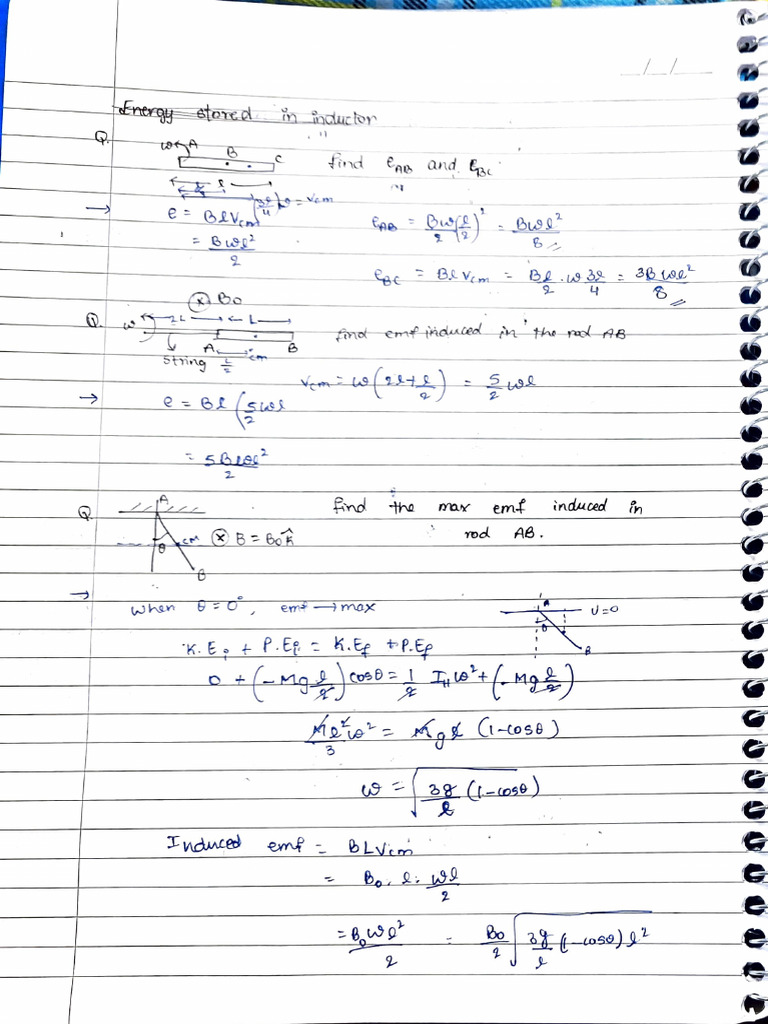 _/_/_
Energy stored in inductor
Q. ω A B C find e_AB and e_BC
l
(3l/4)ω = Vcm
→ e = BlVcm
= Bωl²/2
e_AB = Bω/2 (l/2)² = Bωl²/8
e_BC = BlVcm = Bl/2 · ω 3l/4 = 3Bωl²/8
⊗ B₀
Q. ω 2L L find emf induced in the rod AB
A B
String L/2 cm
Vcm = ω(2l + l/2) = 5/2 ωl
→ e = Bl (5/2 ωl
= 5Bωl²/2
Q. A find the max emf induced in
θ CM ⊗ B = B₀k̂ rod AB.
B
→ When θ = 0°, emf → max
A U=0
θ B
K.Ei + P.Ei = K.Ef + P.Ef
0 + (-Mg l/2) cosθ = 1/2 I_H ω² + (-Mg l/2)
Ml²ω²/3 = Mgl (1-cosθ)
ω = √(3g/l (1-cosθ))
Induced emf = BLVcm
= B₀. l. ωl/2
= B₀ωl²/2 = B₀/2 √(3g/l (1-cosθ) l²